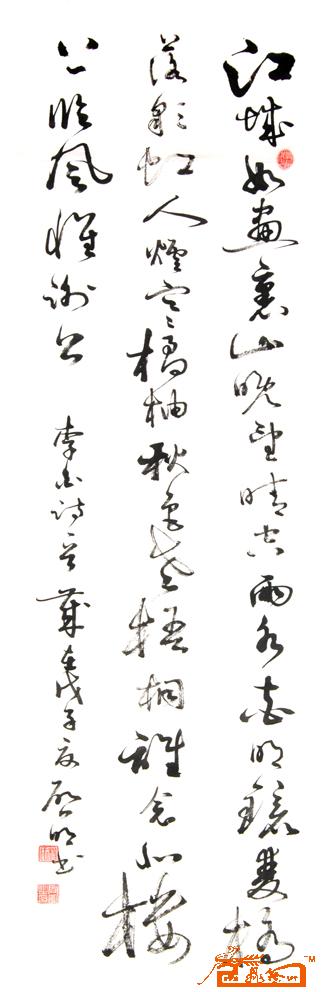 江城如畫裏山晚望晴空兩水夾明鏡雙橋
落彩虹人煙寒橘柚秋色老梧桐誰念北樓
上臨風懷謝公 李白詩 歲在戊子夏 啟明书